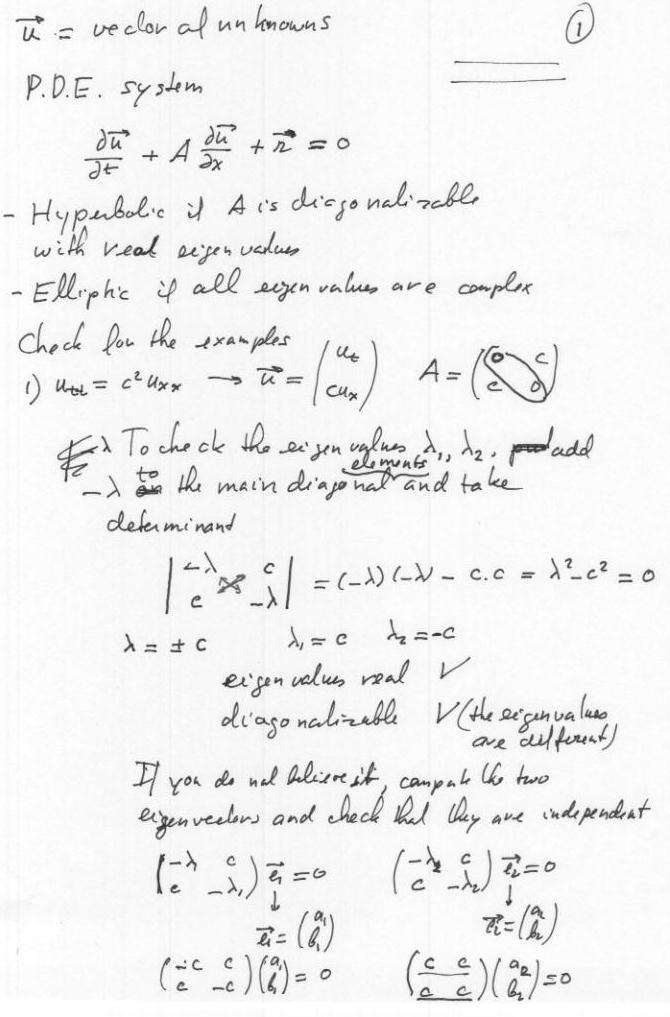 u⃗ = vector of unknowns
①
P.D.E. system
∂u⃗/∂t + A ∂u⃗/∂x + r⃗ = 0
- Hyperbolic if A is diagonalizable
with real eigenvalues
- Elliptic if all eigenvalues are complex
Check for the examples
1) u_tt = c² u_xx → u⃗ = (u_t; cu_x) A = (0 c; c 0)
To check the eigenvalues λ₁, λ₂. add
-λ to the main diagonal elements and take
determinant
|-λ c; c -λ| = (-λ)(-λ) - c.c = λ²-c² = 0
λ = ± c λ₁ = c λ₂ = -c
eigenvalues real √
diagonalizable √ (the eigenvalues
are different)
If you do not believe it, compute the two
eigenvectors and check that they are independent
(-λ c; c -λ₁) e⃗₁ = 0 (-λ₂ c; c -λ₂) e⃗₂ = 0
↓ ↓
e⃗₁ = (a₁; b₁) e⃗₂ = (a₂; b₂)
(-c c; c -c)(a₁; b₁) = 0 (c c; c c)(a₂; b₂) = 0